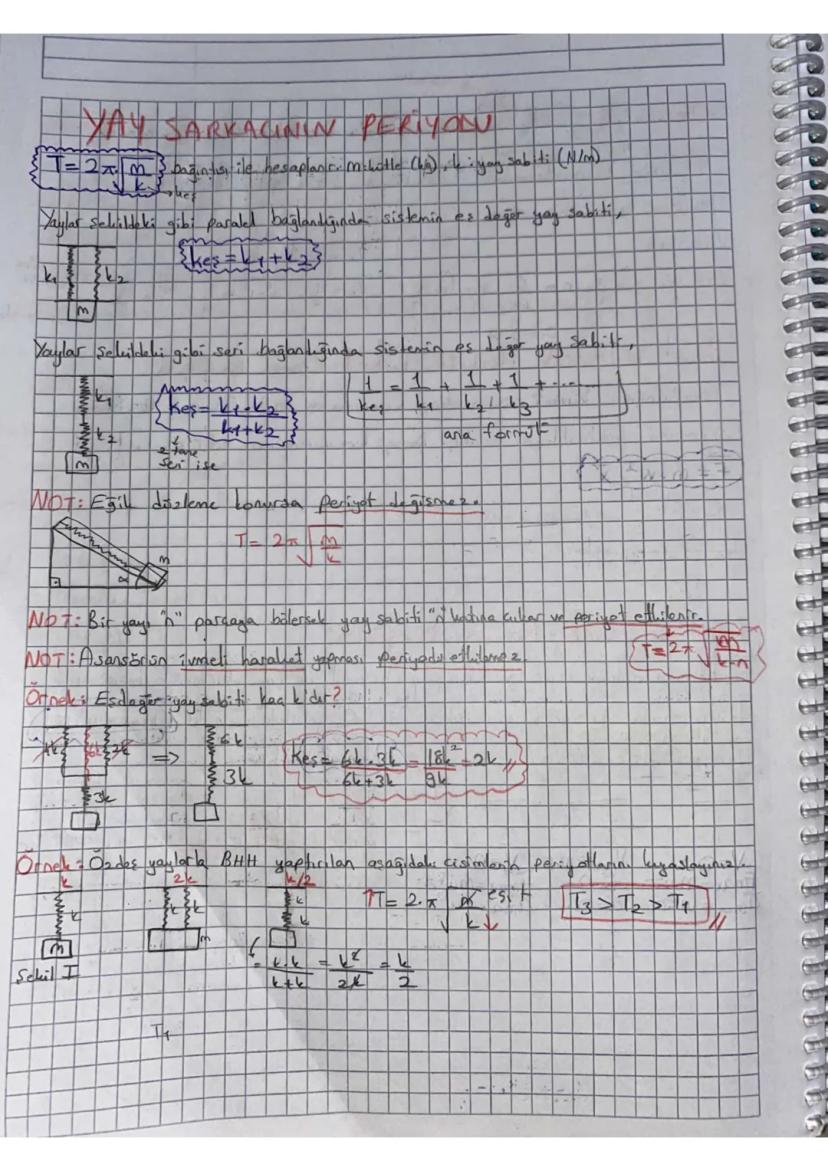 YAY SARKACININ PERİYODU
T = 2π√(m/k) bağıntısı ile hesaplanır. m: kütle (kg), k: yay sabiti (N/m)
→ keş
Yaylar şekildeki gibi paralel bağlandığında sistemin eş değer yay sabiti,
keş = k1 + k2
k1 k2
m
Yaylar şekildeki gibi seri bağlandığında sistemin eş değer yay sabiti,
k1
k2
m
keş = k1 . k2 / k1 + k2
2 tane
seri ise
1/keş = 1/k1 + 1/k2 + 1/k3 + .....
ana formül
NOT: Eğik düzleme konursa periyot değişmez.
m
α
T = 2π√(m/k)
NOT: Bir yayı "n" parçaya bölersek yay sabiti "n" katına çıkar ve periyot etkilenir.
T = 2π√(m/k.n)
NOT: Asansörün ivmeli haraket yapması periyodu etkilemez.
Örnek: Eşdeğer yay sabiti kaç k'dır?
6k 2k
3k
=>
6k
3k
Keş = 6k.3k / 6k+3k = 18k² / 9k = 2k //
Örnek: Özdeş yaylarla BHH yaptırılan aşağıdaki cisimlerin periyotlarını kıyaslayınız.
k 2k k/2
k k k k k
m m
Şekil I
↑T = 2.π √(m/k↓) eşit
T3 > T2 > T1 //
= k.k / k+k = k² / 2k = k/2
T1